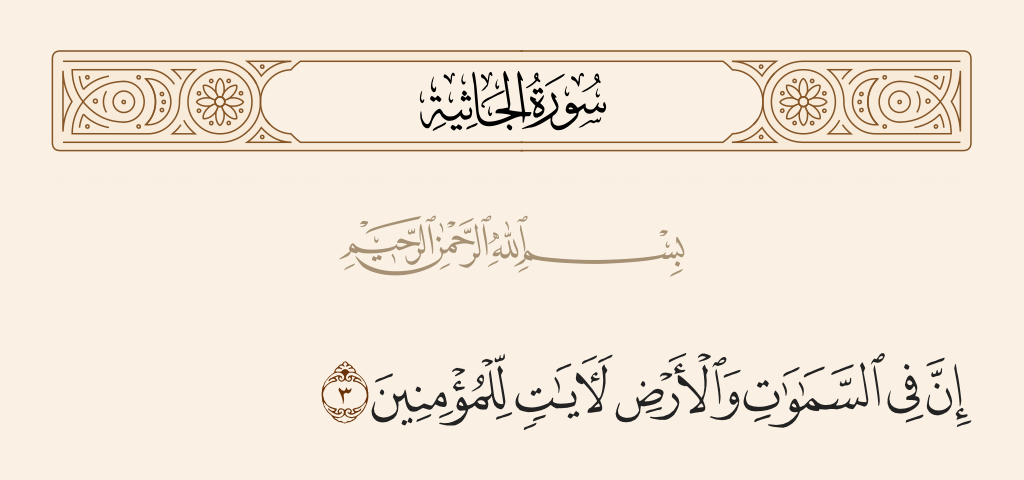 سُورَةُ الجَاثِيَةِ
بِسْمِ ٱللَّهِ ٱلرَّحْمَٰنِ ٱلرَّحِيمِ
إِنَّ فِى ٱلسَّمَٰوَٰتِ وَٱلْأَرْضِ لَءَايَٰتٍ لِّلْمُؤْمِنِينَ ٣